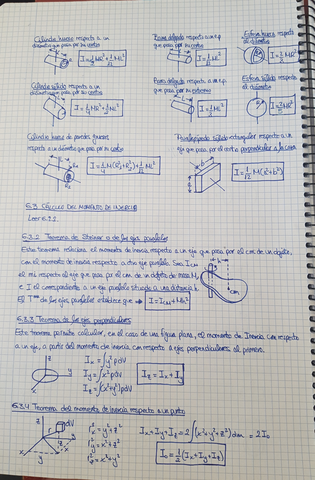 Cilindro hueco respecto a un
diámetro que pasa por su centro
I = 1/2 MR² + 1/12 ML²
Barra delgada respecto a un eje
que pasa por su centro
I = 1/12 ML²
Esfera hueca respecto
al diámetro
Cilindro sólido respecto a un
diámetro que pasa por su centro
I = 1/4 MR² + 1/12 ML²
Barra delgada respecto a un eje
que pasa por su extremo
I = 1/3 ML²
Esfera sólida respecto
al diámetro
I = 2/5 MR²
Cilindro hueco de paredes gruesas
respecto a un diámetro que pasa por su centro
I = 1/4 M(R₁² + R₂²) + 1/12 ML²
Paralelepípedo sólido rectangular respecto a un
eje que pasa por el centro perpendicular a la cara
I = 1/12 M(a² + b²)
5.3. CÁLCULO DEL MOMENTO DE INERCIA
Leer 5.2.2.
5.3.2 Teorema de Steiner o de los ejes paralelos
Este teorema relaciona el momento de inercia respecto a un eje que pasa por el cm de un objeto,
con el momento de inercia respecto a otro eje paralelo. Sea Icm
el mi respecto al eje que pasa por el cm de un objeto de masa M,
e I el correspondiente a un eje paralelo situado a una distancia h.
El Tma de los ejes paralelos establece que → I = Icm + Mh²
5.3.3 Teorema de los ejes perpendiculares
Este teorema permite calcular, en el caso de una figura plana, el momento de inercia con respecto
a un eje, a partir del momento de inercia con respecto a ejes perpendiculares al primero.
Ix = ∫y²ρdV
Iy = ∫x²ρdV
Iz = ∫(x²+y²)ρdV
Iz = Ix + Iy
5.3.4 Teorema del momento de inercia respecto a un punto
z
dV
r
x
y
rx² = y² + z²
ry² = x² + z²
rz² = x² + y²
Ix + Iy + Iz = 2∫(x² + y² + z²)dm = 2I₀
I₀ = 1/2 (Ix + Iy + Iz)